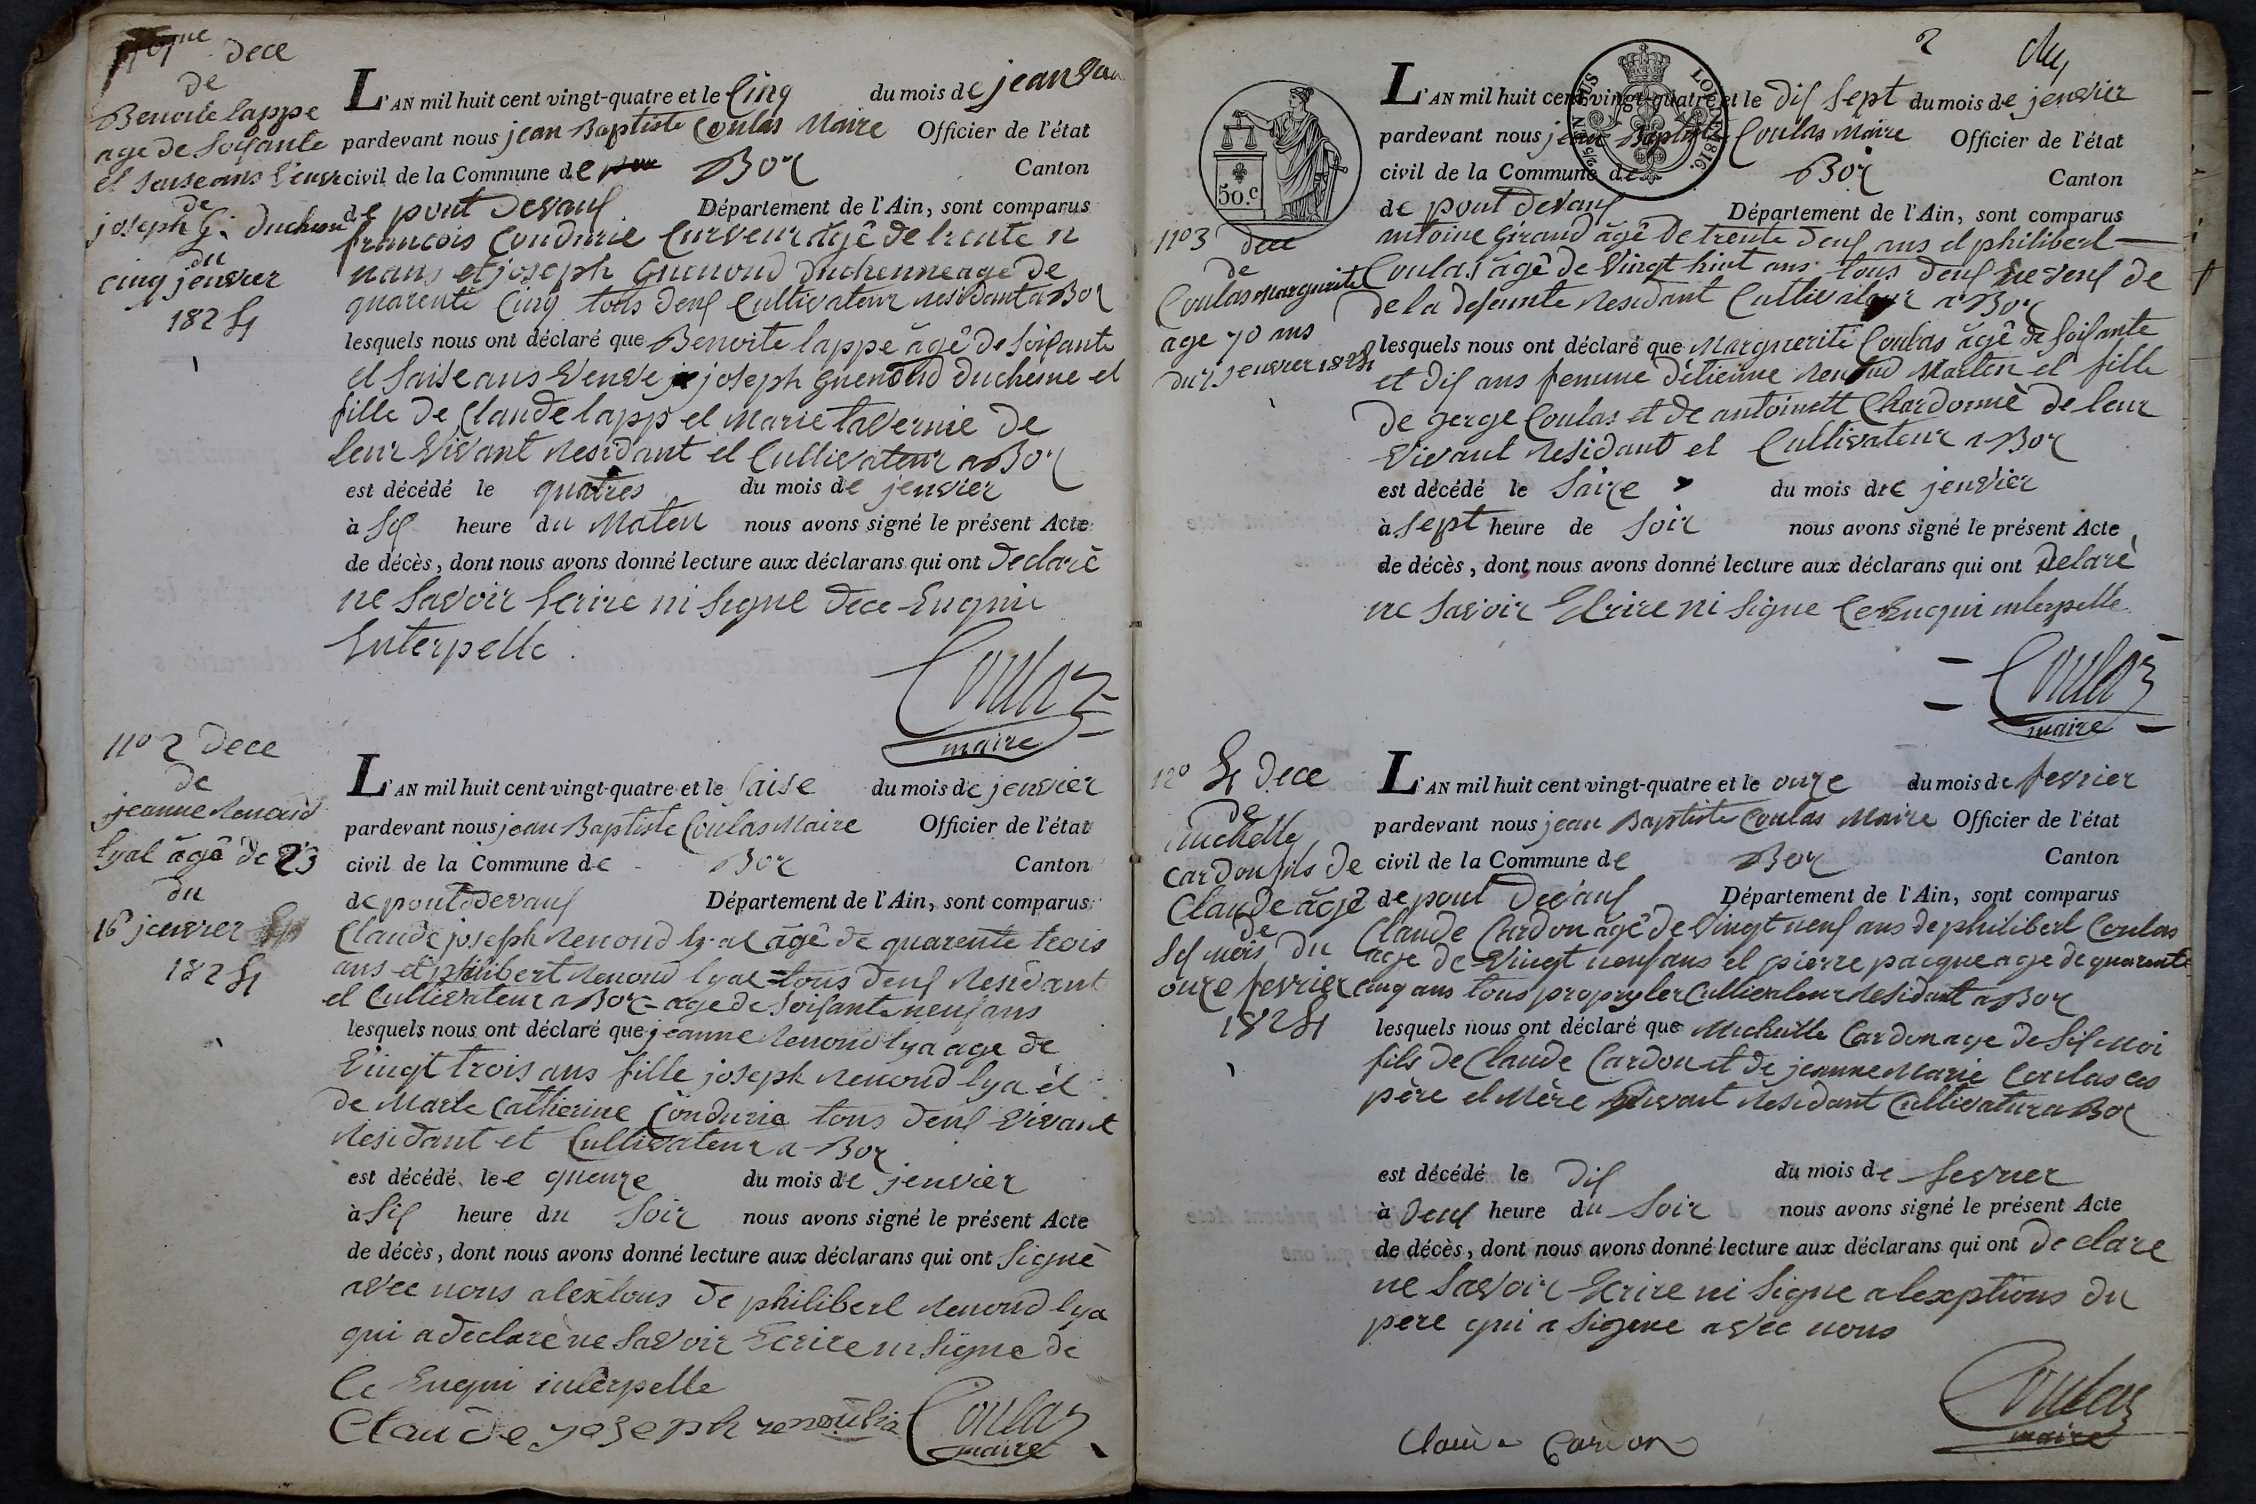 dece
de
Benoite lappe
age de soisante
et saise ans veuve
de
joseph G. duchene
du
cinq jenvier
1824
L'AN mil huit cent vingt-quatre et le Cinq du mois de jeanvier
pardevant nous jean Baptiste Coulas Maire Officier de l'état
civil de la Commune de Boz Canton
de pont devaux Département de l'Ain, sont comparus
francois Condurie Curveur âgê de trente n
nans et joseph guenoud duchenne age de
quarente Cinq tous deux Cultivateur residant a Boz
lesquels nous ont déclaré que Benoite lappe âgê de soisante
et saise ans veuve joseph guenoud ducheme et
fille de Claude lapp et Marie taVernie de
leur Vivant residant et Cultivateur a Boz
est décédé le quatres du mois de jenvier
à six heure du Maten nous avons signé le présent Acte
de décès, dont nous avons donné lecture aux déclarans qui ont declarè
ne savoir Ecrire ni signe dece Enquni
Enterpelle.
Coulaz
maire
n° 2 dece
de
jeanne renoud
lyal âgê de 23
du
16 jenvrer
1824
L'AN mil huit cent vingt-quatre et le saise du mois de jenvier
pardevant nous jean Baptiste Coulas Maire Officier de l'état
civil de la Commune de Boz Canton
de pont devaux Département de l'Ain, sont comparus
Claude joseph renoud lyal âgê de quarente trois
ans et philibert renoud lyal tous deux residant
et Cultivateur a Boz age de soisante neuf ans
lesquels nous ont déclaré que jeanne renoud lya age de
Vingt trois ans fille joseph renoud lya et
de Marie Catherine Condurie tous deux vivant
residant et Cultivateur a Boz
est décédé le quenze du mois de jenvier
à six heure du soir nous avons signé le présent Acte
de décès, dont nous avons donné lecture aux déclarans qui ont signè
avec nous alextous de philiberl renoud lya
qui a declarè ne savoir Ecrire ni signe de
Ce Enquni interpelle
Claude joseph renoud lia
Coulaz
maire
2
50.c
LOI DE 1816.
n° 3 dece
de
Coulas Margurite
age 70 ans
du 17 jenvrer 1824
L'AN mil huit cent vingt-quatre et le dix sept du mois de jenvier
pardevant nous jean Baptiste Coulas Maire Officier de l'état
civil de la Commune de Boz Canton
de pont devaux Département de l'Ain, sont comparus
antoine Giraud âgê de trente deux ans et philiberl
Coulas âgê de Vingt huit ans tous deux neveux de
de la defeunte residant Cultivateur a Boz
lesquels nous ont déclaré que Marguerite Coulas âgê de soisante
et dix ans femme d'etienne renoud Marten et fille
de gerge Coulas et de antoinett Chardonnè de leur
Vivant residant et Cultivateur a Boz
est décédé le saize du mois de jenvier
à sept heure de soir nous avons signé le présent Acte
de décès, dont nous avons donné lecture aux déclarans qui ont delarè
ne savoir Ecrire ni signe Ce Enquni interpelle
Coulaz
maire
n° 4 dece
de
Michelle
Cardon fils de
Claude âgê
de
six mois du
onze fevrier
1824
L'AN mil huit cent vingt-quatre et le onze du mois de fevrier
pardevant nous jean Baptiste Coulas Maire Officier de l'état
civil de la Commune de Boz Canton
de pont devaux Département de l'Ain, sont comparus
Claude Cardon âgê de Vingt neuf ans de philiberl Coulas
age de Vingt neuf ans et pierre pacque age de quarente
cinq ans tous propryter Cultivateur residant a Boz
lesquels nous ont déclaré que Michelle Cardon age de six moi
fils de Claude Cardon et de jeanne Marie Coulas ces
père et Mère vivant residant Cultivatur a Boz
est décédé le dix du mois de fevrier
à deux heure du soir nous avons signé le présent Acte
de décès, dont nous avons donné lecture aux déclarans qui ont declare
ne savoir Ecrire ni signe alexptions du
père qui a signe avec nous
Coulaz
maire
Claude Cardon